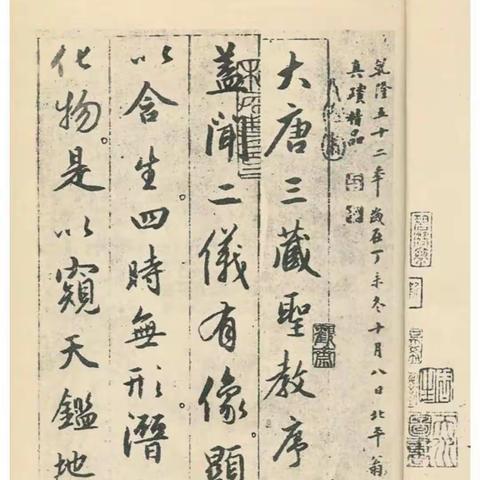 乾隆五十二年歲在丁未冬十月八日北平翁
真蹟精品
大唐三藏聖教序
蓋聞二儀有像顯
以含生四時無形潛
化物是以窺天鑑地